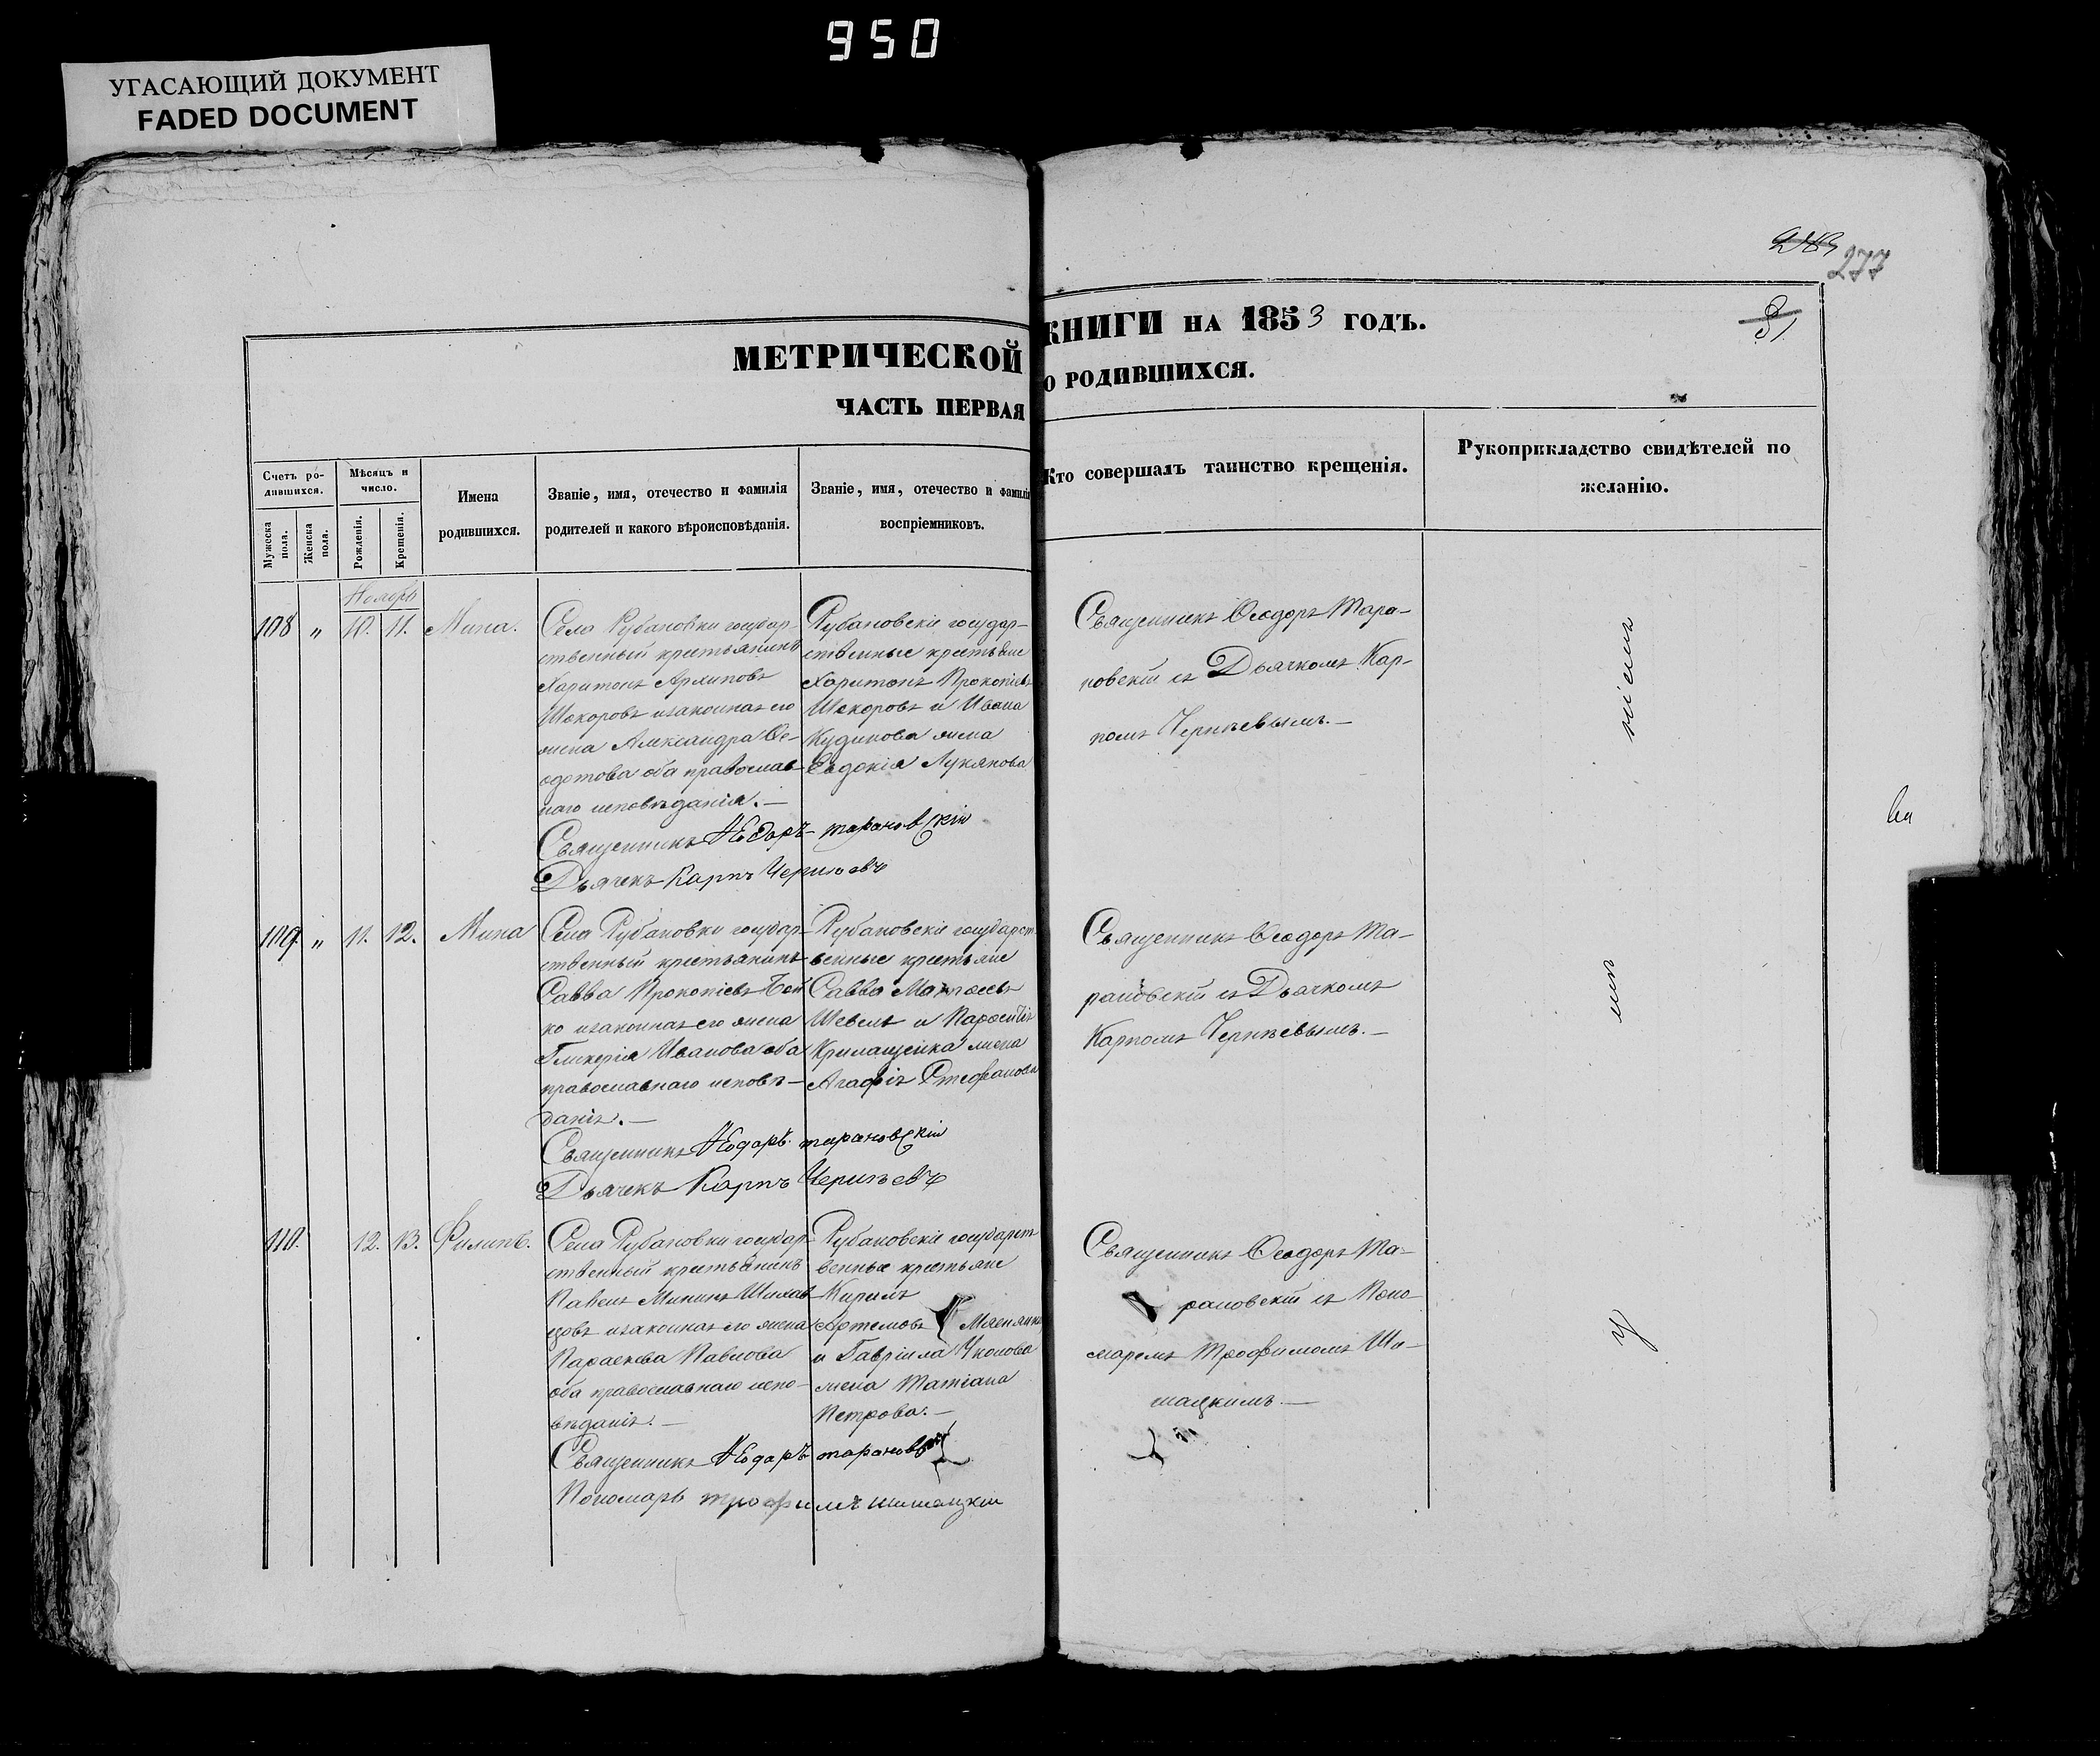 950
УГАСАЮЩИЙ ДОКУМЕНТ
FADED DOCUMENT
277
31
МЕТРИЧЕСКОЙ КНИГИ НА 1853 ГОДЪ.
ЧАСТЬ ПЕРВАЯ О РОДИВШИХСЯ.
Счетъ ро-
дившихся.
Мужеска пола.
Женска пола.
Мѣсяцъ и
число.
Рожденія.
Крещенія.
Имена
родившихся.
Званіе, имя, отечество и фамилія
родителей и какого вѣроисповѣданія.
Званіе, имя, отечество и фамилія
воспріемниковъ.
Кто совершалъ таинство крещенія.
Рукоприкладство свидѣтелей по
желанію.
Ноябрь
108 " 10. 11. Мина.
Села Рубановки государ-
ственный крестьянинъ
Харитонъ Архиповъ
Шокоровъ изаконная его
жена Александра Ѳе-
одотова оба православ
наго исповѣданія.—
Священникъ Ѳеодоръ Тарановскій
Дьячекъ Карпъ Чернѣевъ
Рубановскіе государ-
ственные крестьяне
Харитонъ Прокопіевъ
Шокоровъ и Ивана
Кудинова жена
Евдокія Лукянова
Священникъ Ѳеодоръ Тара-
новскій съ Дьячкомъ Кар-
помъ Чернѣевымъ.—
109. " 11. 12. Мина
Села Рубановки государ-
ственный крестьянинъ
Савва Прокопіевъ Бой
ко изаконная его жена
Гликерія Иванова оба
православнаго исповѣ-
данія.—
Священникъ Ѳеодоръ Тарановскій
Дьячекъ Карпъ Чернѣевъ
Рубановскіе государст
венные крестьяне
Савва
Шевель и
жена
Агафія Стефанова
Священникъ Ѳеодоръ Та-
рановскій съ Дьячкомъ
Карпомъ Чернѣевымъ.—
110. 12. 13. Филипъ.
Села Рубановки государ-
ственный крестьянинъ
Павелъ Мининъ
изаконная его жена
Параскева Павлова
оба православнаго испо-
вѣданія.—
Священникъ Ѳеодоръ Тарановскій
Пономарь Трофимъ Шишацкій
Рубановскіе государст
венные крестьяне
Кирилъ
Артемовъ
и Гавріила
жена Татіана
Петрова.—
Священникъ Ѳеодоръ Та-
рановскій съ Поно-
маремъ Трофимомъ Ши-
шацкимъ.—